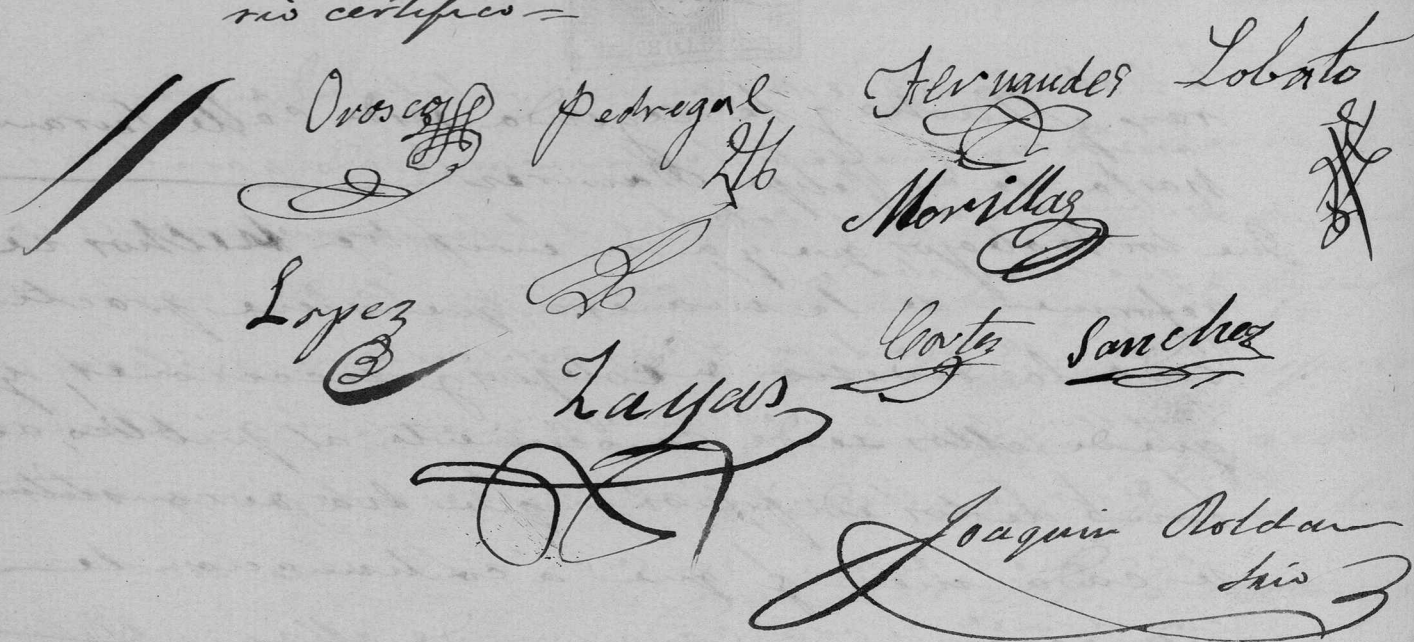 rio certifico=
Orosco Pedregal Fernandes Lobato
Morillas
Lopez
Zayas Cortes Sanchez
Joaquin Roldan
Srio